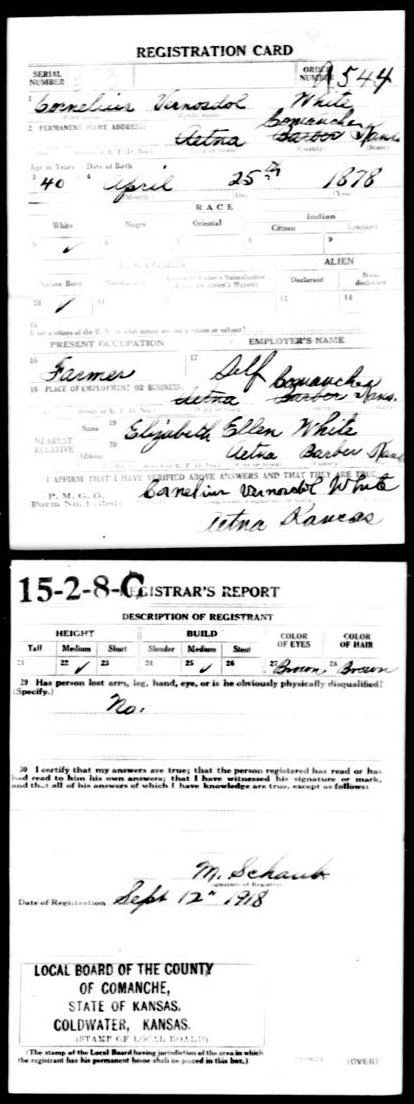 REGISTRATION CARD
SERIAL NUMBER
ORDER NUMBER A544
1 Cornelius Vernosdol White
2 PERMANENT HOME ADDRESS:
Comanche
Aetna Barber Kans
(County) (State)
Age in Years Date of Birth
3 40 4 April 25th 1878
(Month) (Day) (Year)
RACE
White Negro Oriental Indian
Citizen Noncitizen
5 ✓ 6 7 8 9
U. S. CITIZEN ALIEN
Native Born Naturalized Citizen by Father's Naturalization Before Registrant's Majority Declarant Non-declarant
10 ✓ 11 12 13 14
15
If not a citizen of the U. S., of what nation are you a citizen or subject?
PRESENT OCCUPATION EMPLOYER'S NAME
16 Farmer 17 Self
18 PLACE OF EMPLOYMENT OR BUSINESS:
Comanche
Aetna Barber Kans.
NEAREST RELATIVE
Name 19 Elizabeth Ellen White
Address 20 Aetna Barber Kans
I AFFIRM THAT I HAVE VERIFIED ABOVE ANSWERS AND THAT THEY ARE TRUE
P. M. G. O.
Form No. 1 (Red)
Cornelius Vernosdol White
Aetna Kansas
15-2-8-C REGISTRAR'S REPORT
DESCRIPTION OF REGISTRANT
HEIGHT BUILD COLOR OF EYES COLOR OF HAIR
Tall Medium Short Slender Medium Stout
21 22 ✓ 23 24 25 ✓ 26 27 Brown 28 Brown
29 Has person lost arm, leg, hand, eye, or is he obviously physically disqualified?
(Specify.)
No.
30 I certify that my answers are true; that the person registered has read or has
had read to him his own answers; that I have witnessed his signature or mark,
and that all of his answers of which I have knowledge are true, except as follows:
M. Schaub
(Signature of Registrar)
Date of Registration Sept 12" 1918
LOCAL BOARD OF THE COUNTY
OF COMANCHE,
STATE OF KANSAS,
COLDWATER, KANSAS.
(STAMP OF LOCAL BOARD)
(The stamp of the Local Board having jurisdiction of the area in which
the registrant has his permanent home shall be placed in this box.)
(OVER)